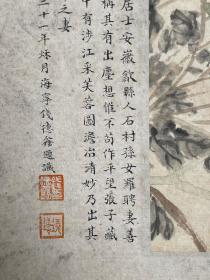 居士安徽歙縣人石村孫女羅聘妻善
稱其有出塵想惟不苟作平望張子藏
中有涉江采芙蓉圖澹冶清妙乃出其
之妻
二十一年秌月海寧錢德鑫題識